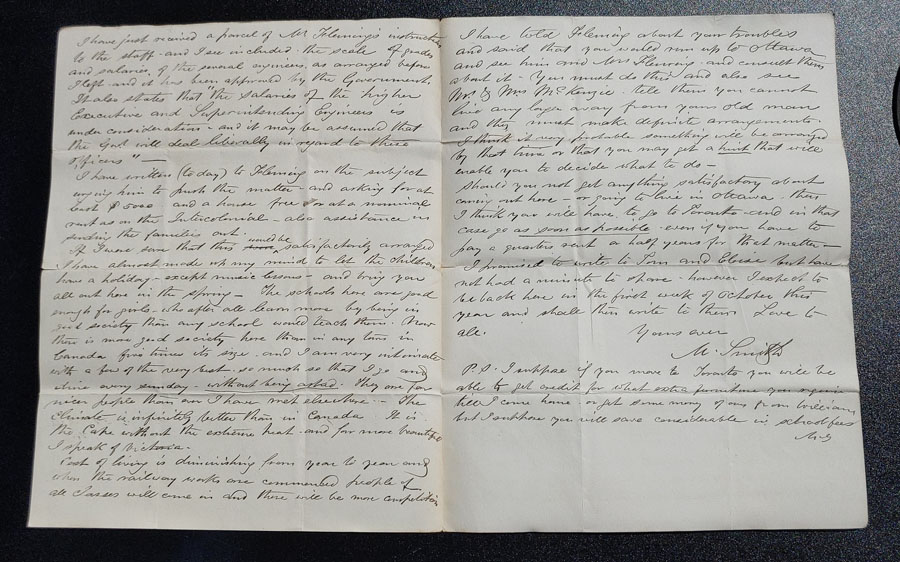 I have just received a parcel of Mr Fleming's instructions
to the staff and I see included the scale of grades
and salaries of the several engineers, as arranged before
I left and it has been approved by the Government.
It also states that the salaries of the higher
Executive and Superintending Engineers is
under consideration - and it may be assumed that
the Govt will deal liberally in regard to these
officers" —
I have written (to day) to Fleming on the subject
urging him to push the matter - and asking for at
least $5000 and a house free or at a nominal
rent as on the Intercolonial - also assistance in
sending the families out.
If I were sure that this would be satisfactorily arranged
I have almost made up my mind to let the children
have a holiday - except music lessons - and bring you
all out here in the spring - The schools here are good
enough for girls who after all learn more by being in
good society than any school would teach them. Now
there is more good society here than in any town in
Canada five times its size and I am very intimate
with a few of the very best so much so that I go and
dine every Sunday - without being asked. They are far
nicer people than any I have met elsewhere - The
Climate is infinitely better than in Canada It is
the Cape without the extreme heat and far more beautiful
I speak of Victoria.
Cost of living is diminishing from year to year and
when the railway works are commenced people of
all Classes will come in and there will be more competition
I have told Fleming about your troubles
and said that you would run up to Ottawa
and see him and Mrs Fleming and consult them
about it - You must do this and also see
Mr & Mrs McKenzie tell them you cannot
live any longer away from your old man
and they must make definite arrangements.
I think it very probable something will be arranged
by that time or that you may get a hint that will
enable you to decide what to do -
Should you not get anything satisfactory about
coming out here - or going to live in Ottawa then
I think you will have to go to Toronto and in that
case go as soon as possible even if you have to
pay a quarters rent or half years for that matter -
I promised to write to Tom and Eloise but have
not had a minute to spare - however I expect to
be back here in the first week of October this
year and shall then write to them. Love to
all.
Yours ever
M. Smith
P.S. I suppose if you move to Toronto you will be
able to get credit for what extra furniture you require
till I come home or get some money of any from Williams
but I suppose you will save considerable in school fees
M.S